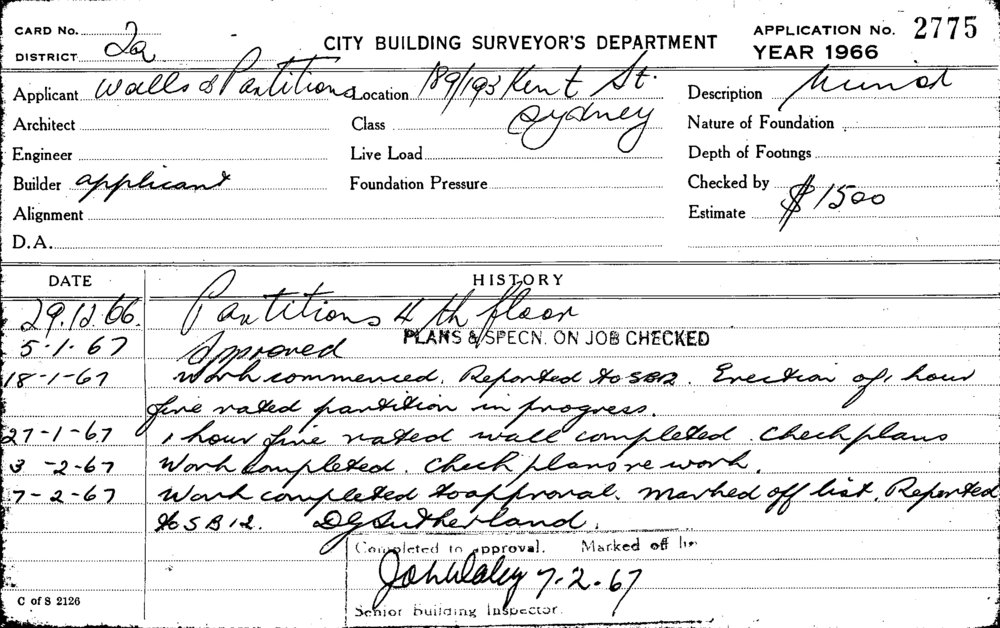 CARD No.
DISTRICT 2a
CITY BUILDING SURVEYOR'S DEPARTMENT
APPLICATION No. 2775
YEAR 1966
Applicant Walls & Partitions
Location 189/193 Kent St.
Sydney
Description
Architect
Class
Nature of Foundation
Engineer
Live Load
Depth of Footings
Builder applicant
Foundation Pressure
Checked by
Alignment
Estimate $1500
D.A.
DATE HISTORY
29.12.66. Partitions 4th floor
PLANS & SPECN. ON JOB CHECKED
5-1-67 Approved
18-1-67 Work commenced. Reported to SB12. Erection of 1 hour
fire rated partition in progress.
27-1-67 1 hour fire rated wall completed. Check plans
3-2-67 Work completed. Check plans re work.
7-2-67 Work completed to approval. Marked off list. Reported
to SB12. DG Sutherland.
Completed to approval. Marked off
John Daley 7-2-67
Senior Building Inspector.
C of S 2126